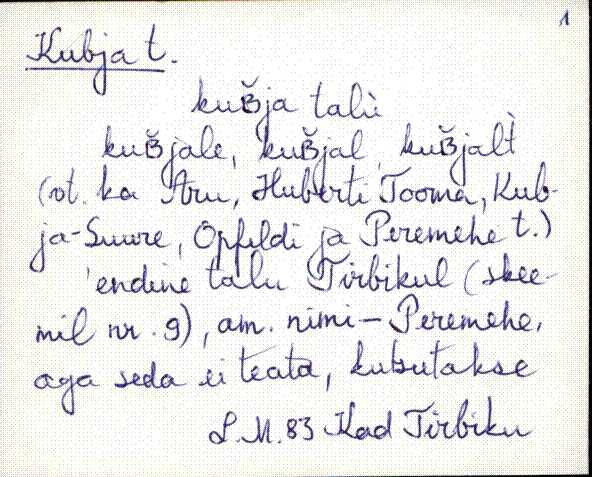 1
Kubja t.
kuʙ̆ja talù
kuʙ̆jale, kuʙ̆jal, kuʙ̆jalt̀
(vt. ka Aru, Huberti Tooma, Kub-
ja-Suure, Opfeldi ja Peremehe t.)
'endine talu Tirbikul (skee-
mil nr. 9), am. nimi – Peremehe,
aga seda ei teata, kutsutakse
L.M. 83 Kad Tirbiku